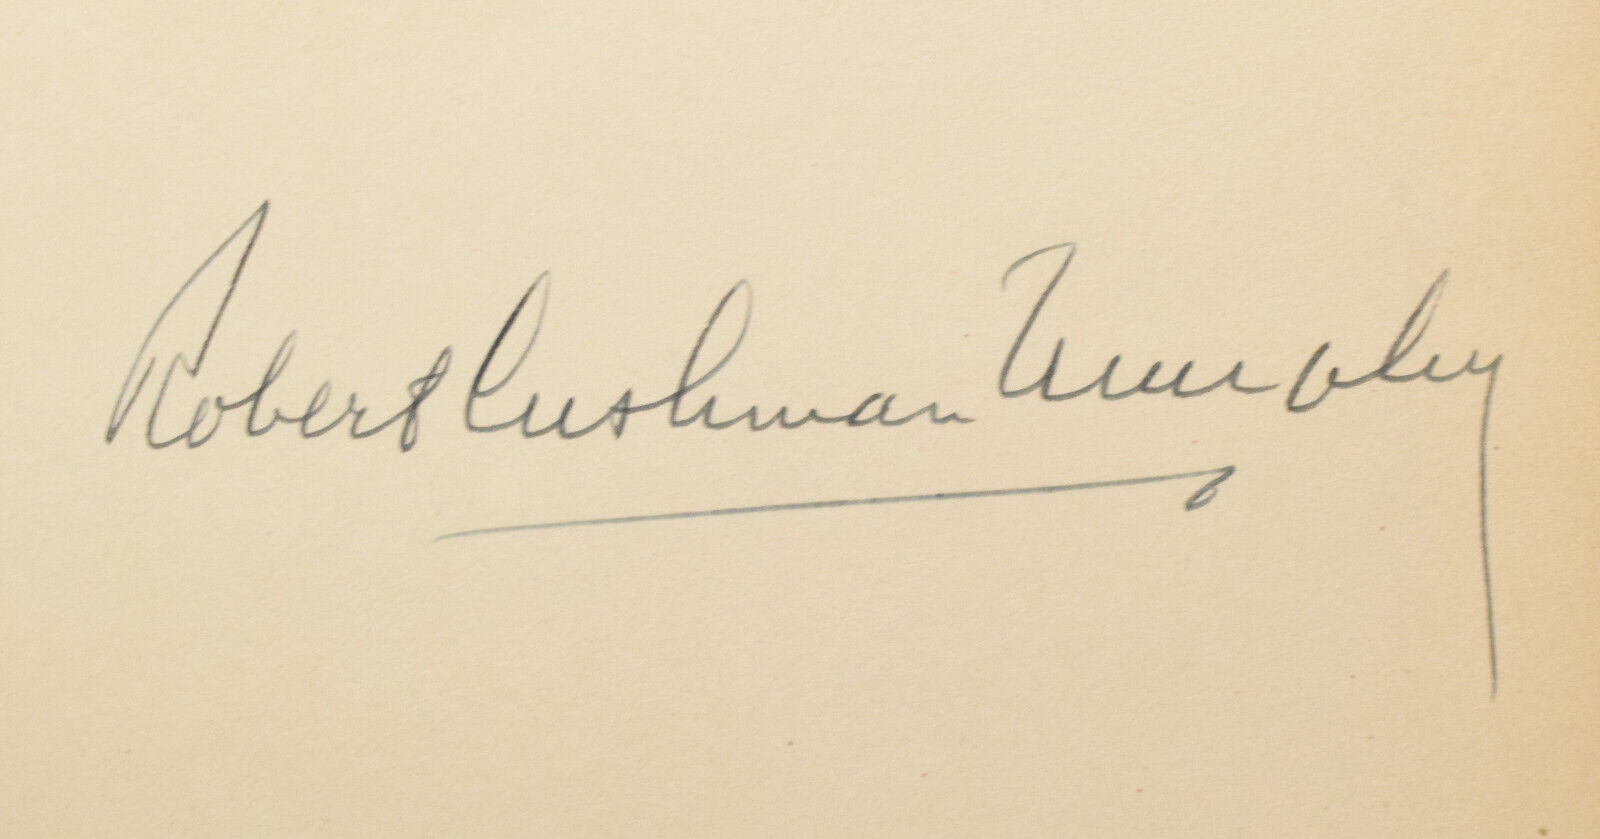 Robert Cushman Murphy